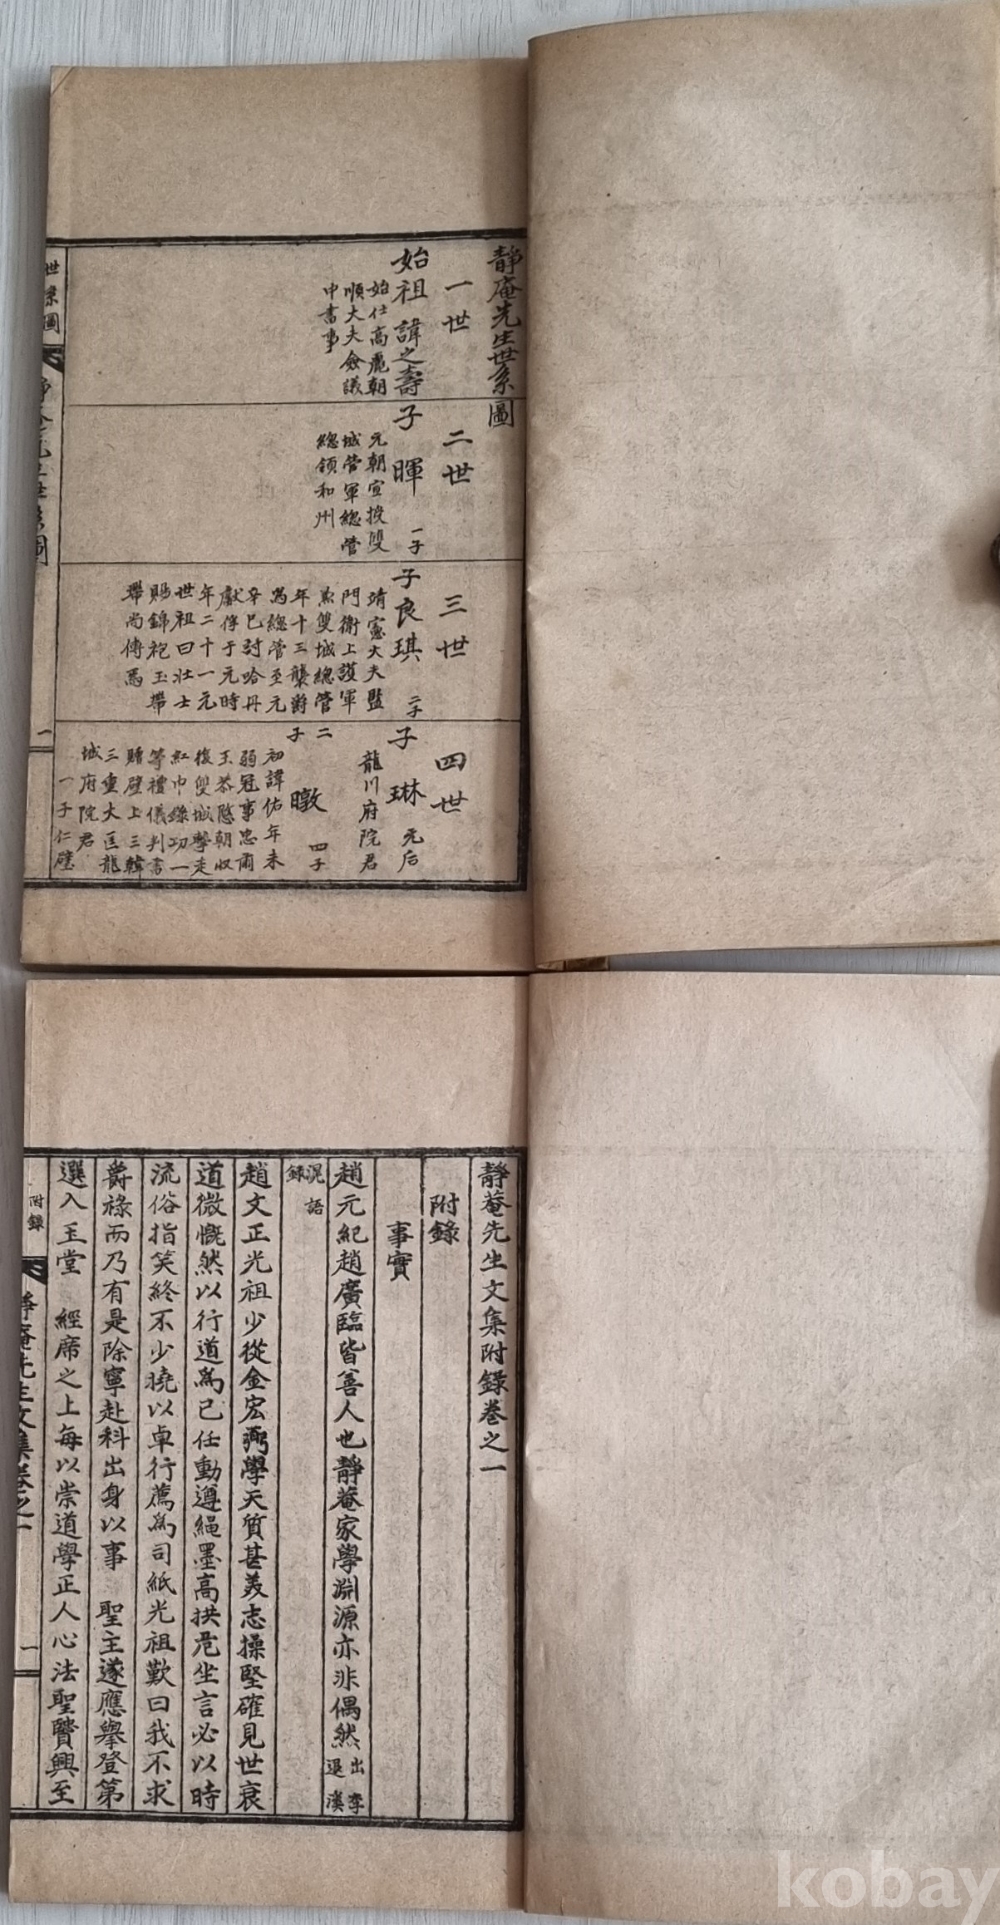 靜庵先生世系圖
一世
始祖諱之壽
始仕高麗朝
順大夫僉議
中書事
二世
子暉 一子
元朝宣授雙
城管軍總管
總領和州
三世
子良琪 二子
靖憲大夫監
門衛上護軍
兼雙城總管
年十三襲爵
爲總管至元
辛巳討哈丹
獻俘于元時
年二十一元
世祖曰壯士
賜錦袍玉帶
四世
子琳 无后
龍川府院君
二子
暾 四子
初諱佑年未
弱冠事忠肅
王恭愍朝收
復雙城擊走
紅巾錄功一
等禮儀判書
贈壁上三韓
三重大匡龍
城府院君
一子仁璧
世系圖
一
靜菴先生文集附錄卷之一
附錄
事實
趙元紀趙廣臨皆善人也靜菴家學淵源亦非偶然 出李退溪
語錄
趙文正光祖少從金宏弼學天質甚美志操堅確見世衰
道微慨然以行道爲己任動遵繩墨高拱危坐言必以時
流俗指笑終不少撓以卓行薦爲司紙光祖歎曰我不求
爵祿而乃有是除寧赴科出身以事 聖主遂應擧登第
選入玉堂 經席之上每以崇道學正人心法聖賢興至
附錄
靜庵先生文集卷之一
一
kobay